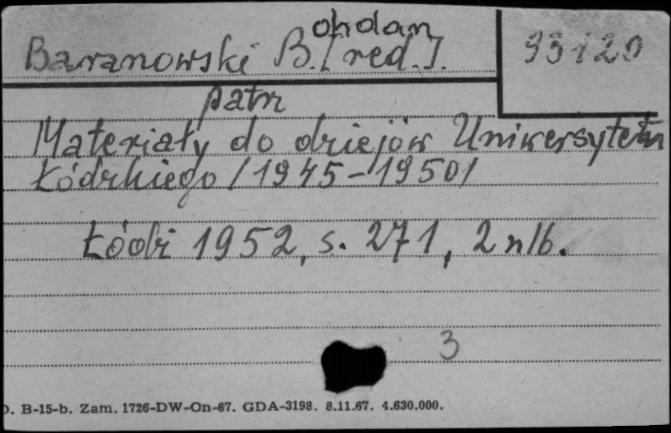 ohdan
Baranowski B. [red.]. 95120
patrz
Materiały do dziejów Uniwersytetu
Łódzkiego /1945-1950/
Łódź 1952, s. 271, 2 nlb.
3
D. B-15-b. Zam. 1726-DW-On-67. GDA-3198. 8.11.67. 4.630.000.